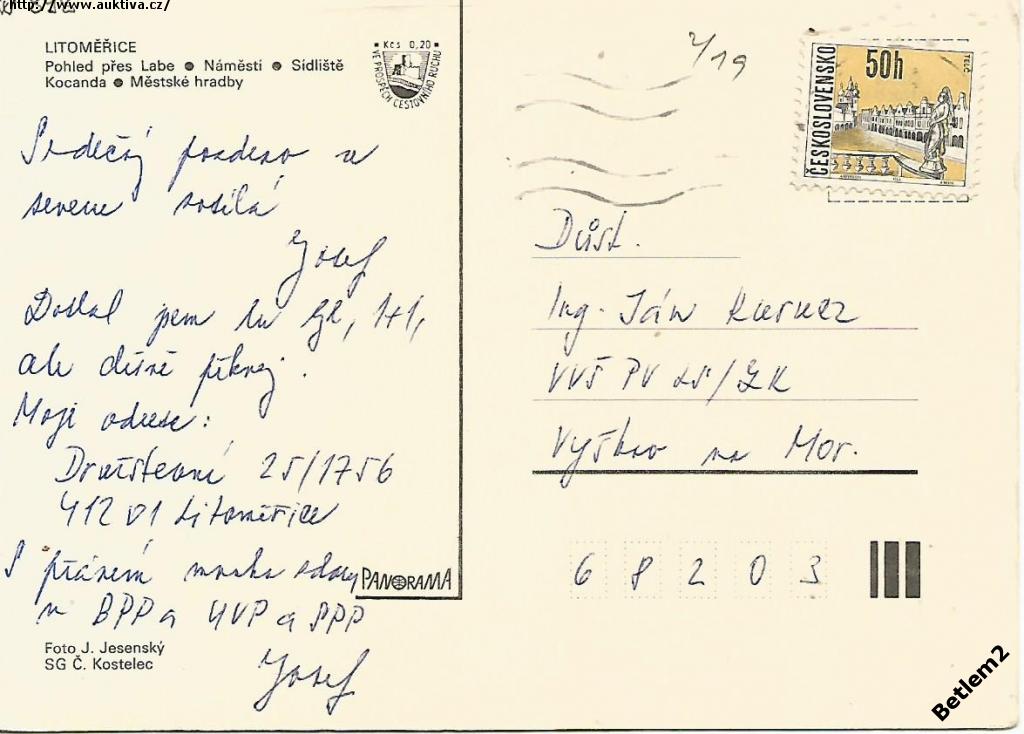 http://www.auktiva.cz/
LITOMĚŘICE
Pohled přes Labe ● Náměstí ● Sídliště
Kocanda ● Městské hradby
Kčs 0,20
VE PROSPĚCH CESTOVNÍHO RUCHU
Srdečný pozdrav ze
severu posílá
Josef
Dostal jsem tu gk, 1+1,
ale děsně pěknej.
Moji adresa:
Družstevní 25/1756
412 01 Litoměřice
S přáním mnoha zdaru
v BPP a
Josef
Foto J. Jesenský
SG Č. Kostelec
PANORAMA
2/19
ČESKOSLOVENSKO
50h
TELČ
Důst.
Ing. Ján
VVŠ PV
Vyškov na Mor.
6 8 2 0 3
Betlem2